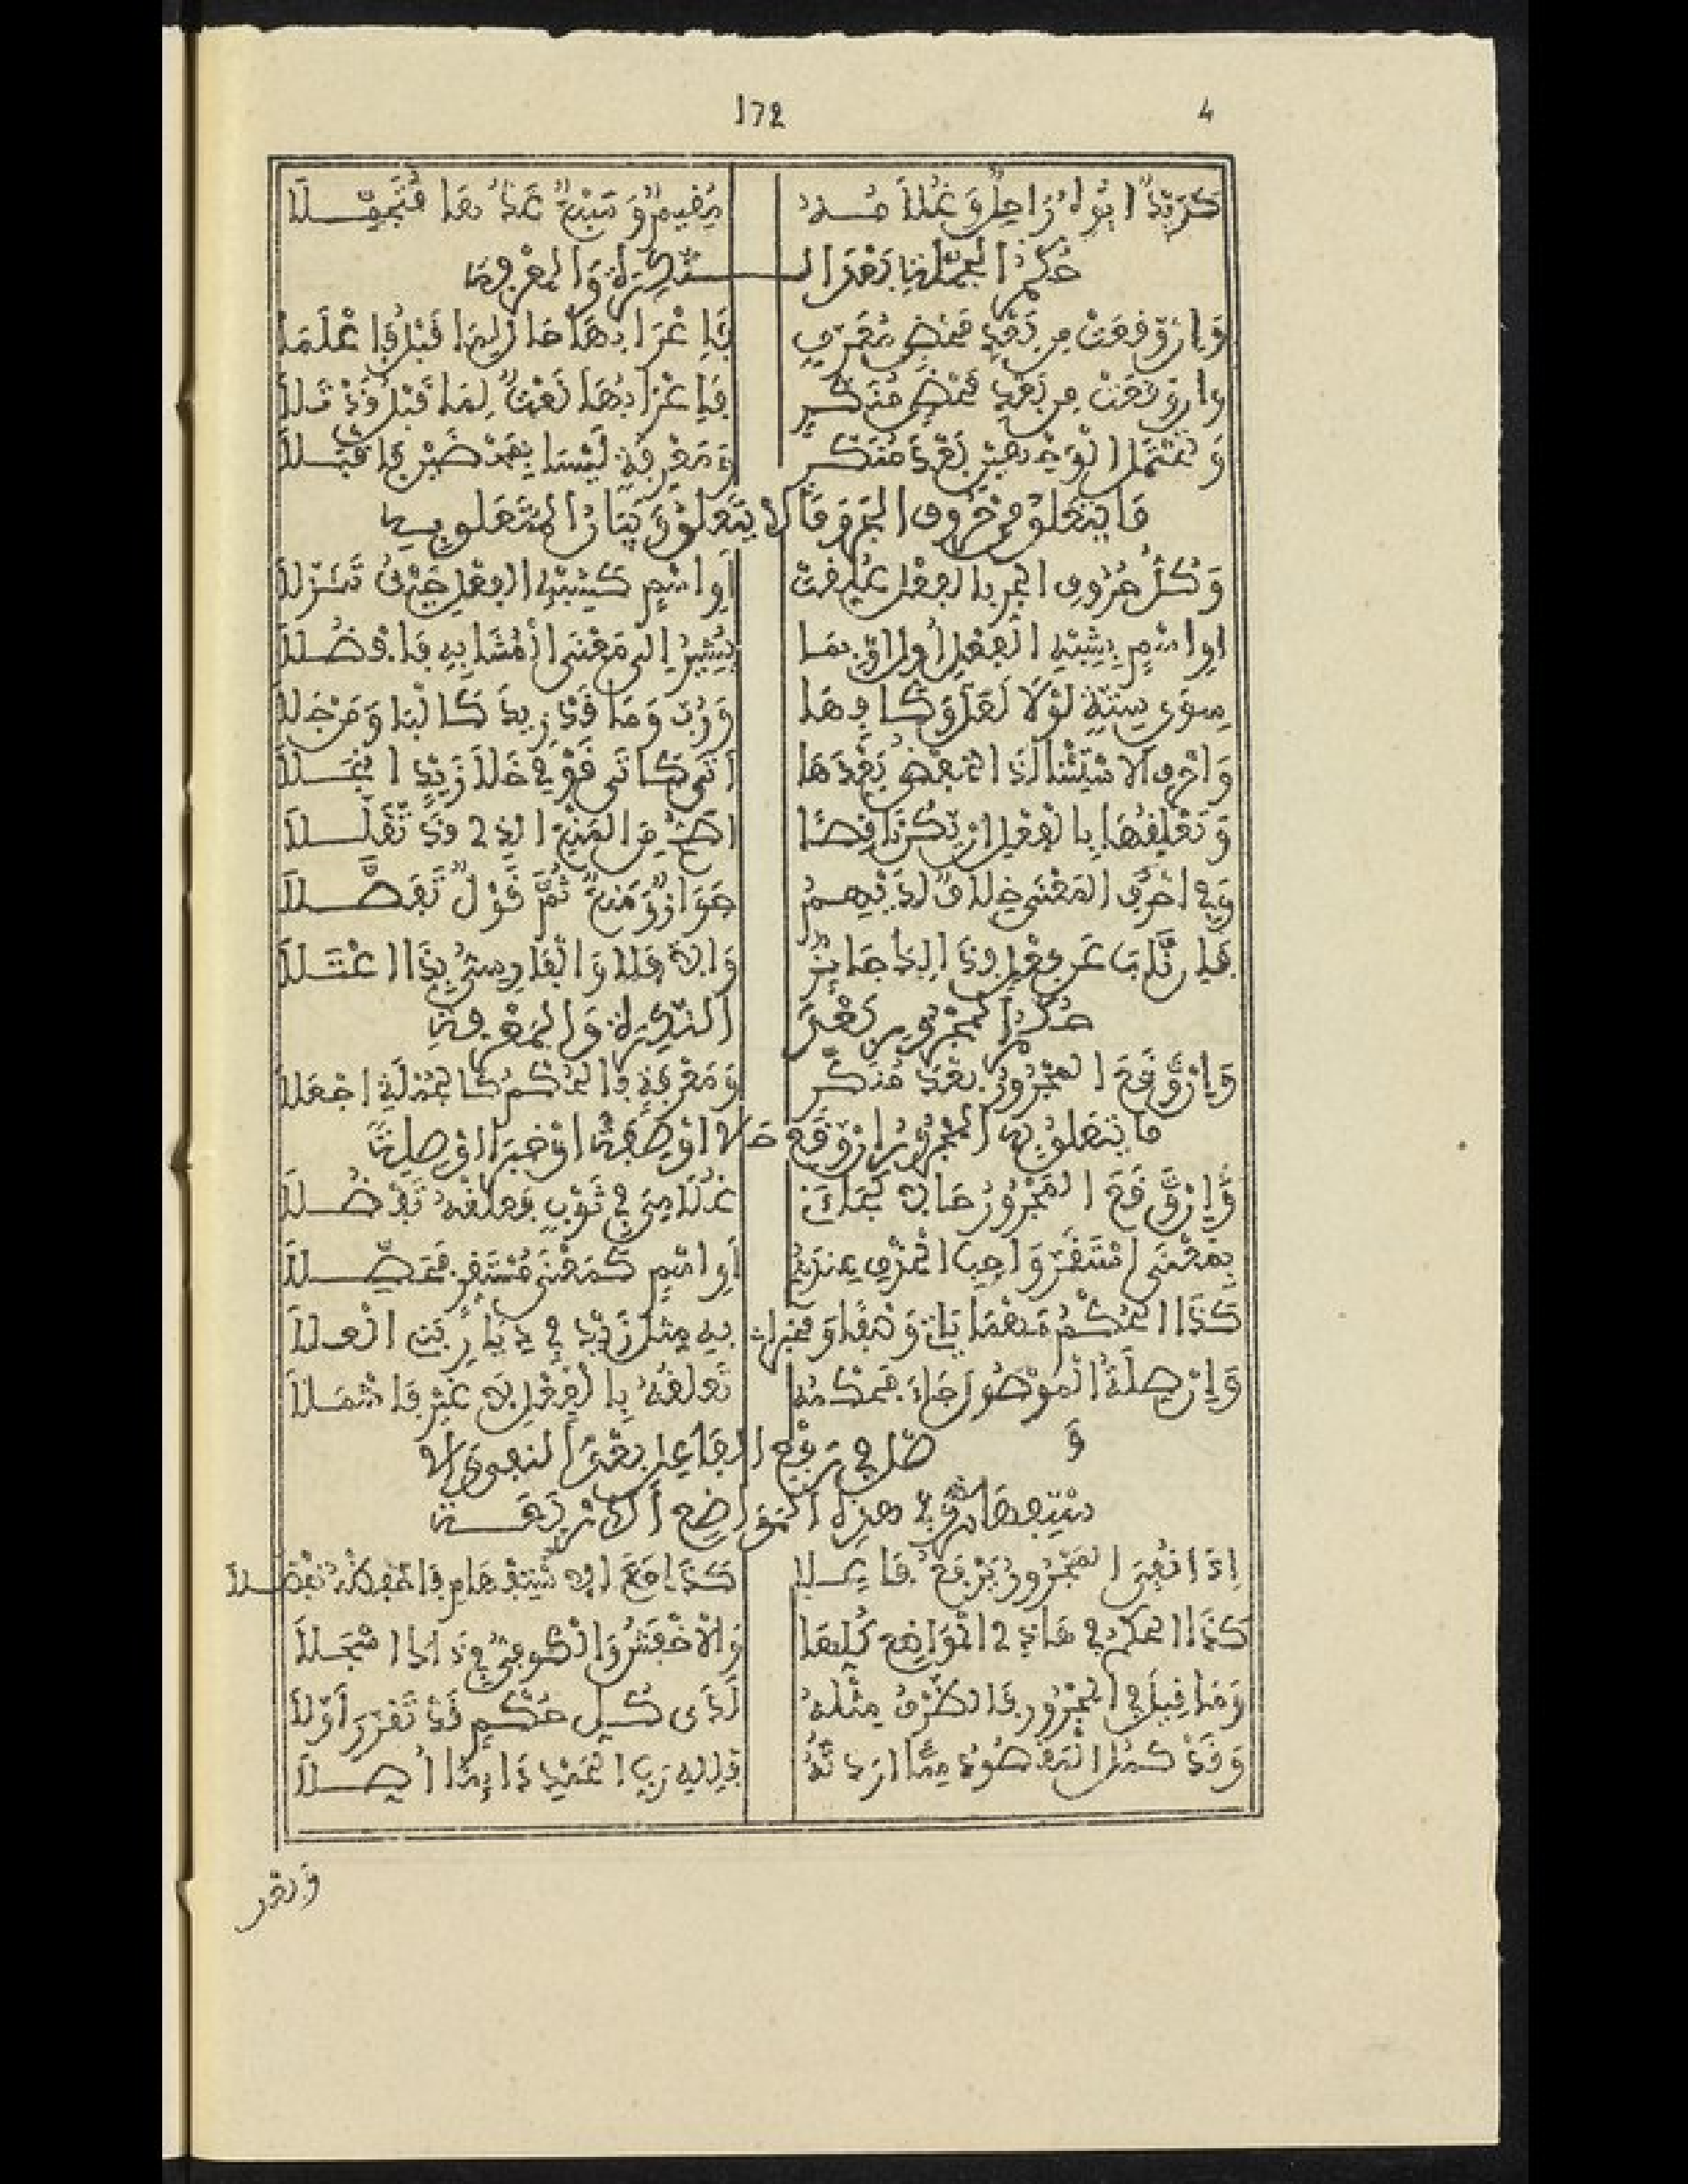 4
172
كزيد ابوه راحل وغلامه مقيم ومبن عدها متجملا
حكم الجمل بعد النكرة والمعرفة
وإن وقعت من بعد محض معرف فإعرابها حال لما قبل فاعلما
وإن وقعت من بعد محض منكر فإعرابها نعت لما قبل قد تلا
وتحتمل الوجهين بعد منكر ومعرفة ليسا بمحضين فاقبلا
ما يتعلق من حروف الجر وما لا يتعلق وبيان المتعلق به
وكل حروف الجر بالفعل علقت أو اسم كشبه الفعل حين تنزلا
أو اسم بشبه الفعل أول أو بما يشير إلى معنى المشابه فافضلا
سوى ستة لولا لعل وكافها ورب وما قد زيد كالبا ومن جلا
وأحرف الاستثنا لذا الخفض بعدها أتى كأتى قومي خلا زيد انجلا
وتعليقها بالفعل إن يك ناقصا أصح من المنع الذي قد تقللا
وفي أحرف المعنى خلاف لديهم جواز ومنع ثم قول تفصلا
فإن ناب عن فعل فذا إذا جائز وإلا فلا والفارسي بذا اعتلا
حكم المجرور بعد النكرة والمعرفة
وإن وقع المجرور بعد منكر ومعرفة فالحكم كالجملة اجعلا
ما يتعلق به المجرور إن وقع حالا أو صفة أو خبرا أو صلة
وإن وقع المجرور حالا كجاءني غلامي في ثوب فعلقه تفضلا
بمعنى استقر واجب الحذف عندهم أو اسم كمعنى مستقر فحصلا
كذا الحكم مهما بات وصفا ومخبرا به مثل زيد في ديار بني العلا
وإن صلة الموصول جاء فحكمه تعلقه بالفعل لا غير فاشملا
فصل في رفع الفاعل بعد النفي والا
ستفهام وفي هذه المواضع الاربعة
إذا نفي المجرور يرفع فاعلا كذا مع الاستفهام
كذا الحكم في هاذي المواضع كلها والاخفش والكوفي في ذا اسجلا
وما قيل في المجرور فالظرف مثله لدى كل حكم قد تقرر أولا
وقد كمل المقصود مما اردته فلله رب الحمد دائما